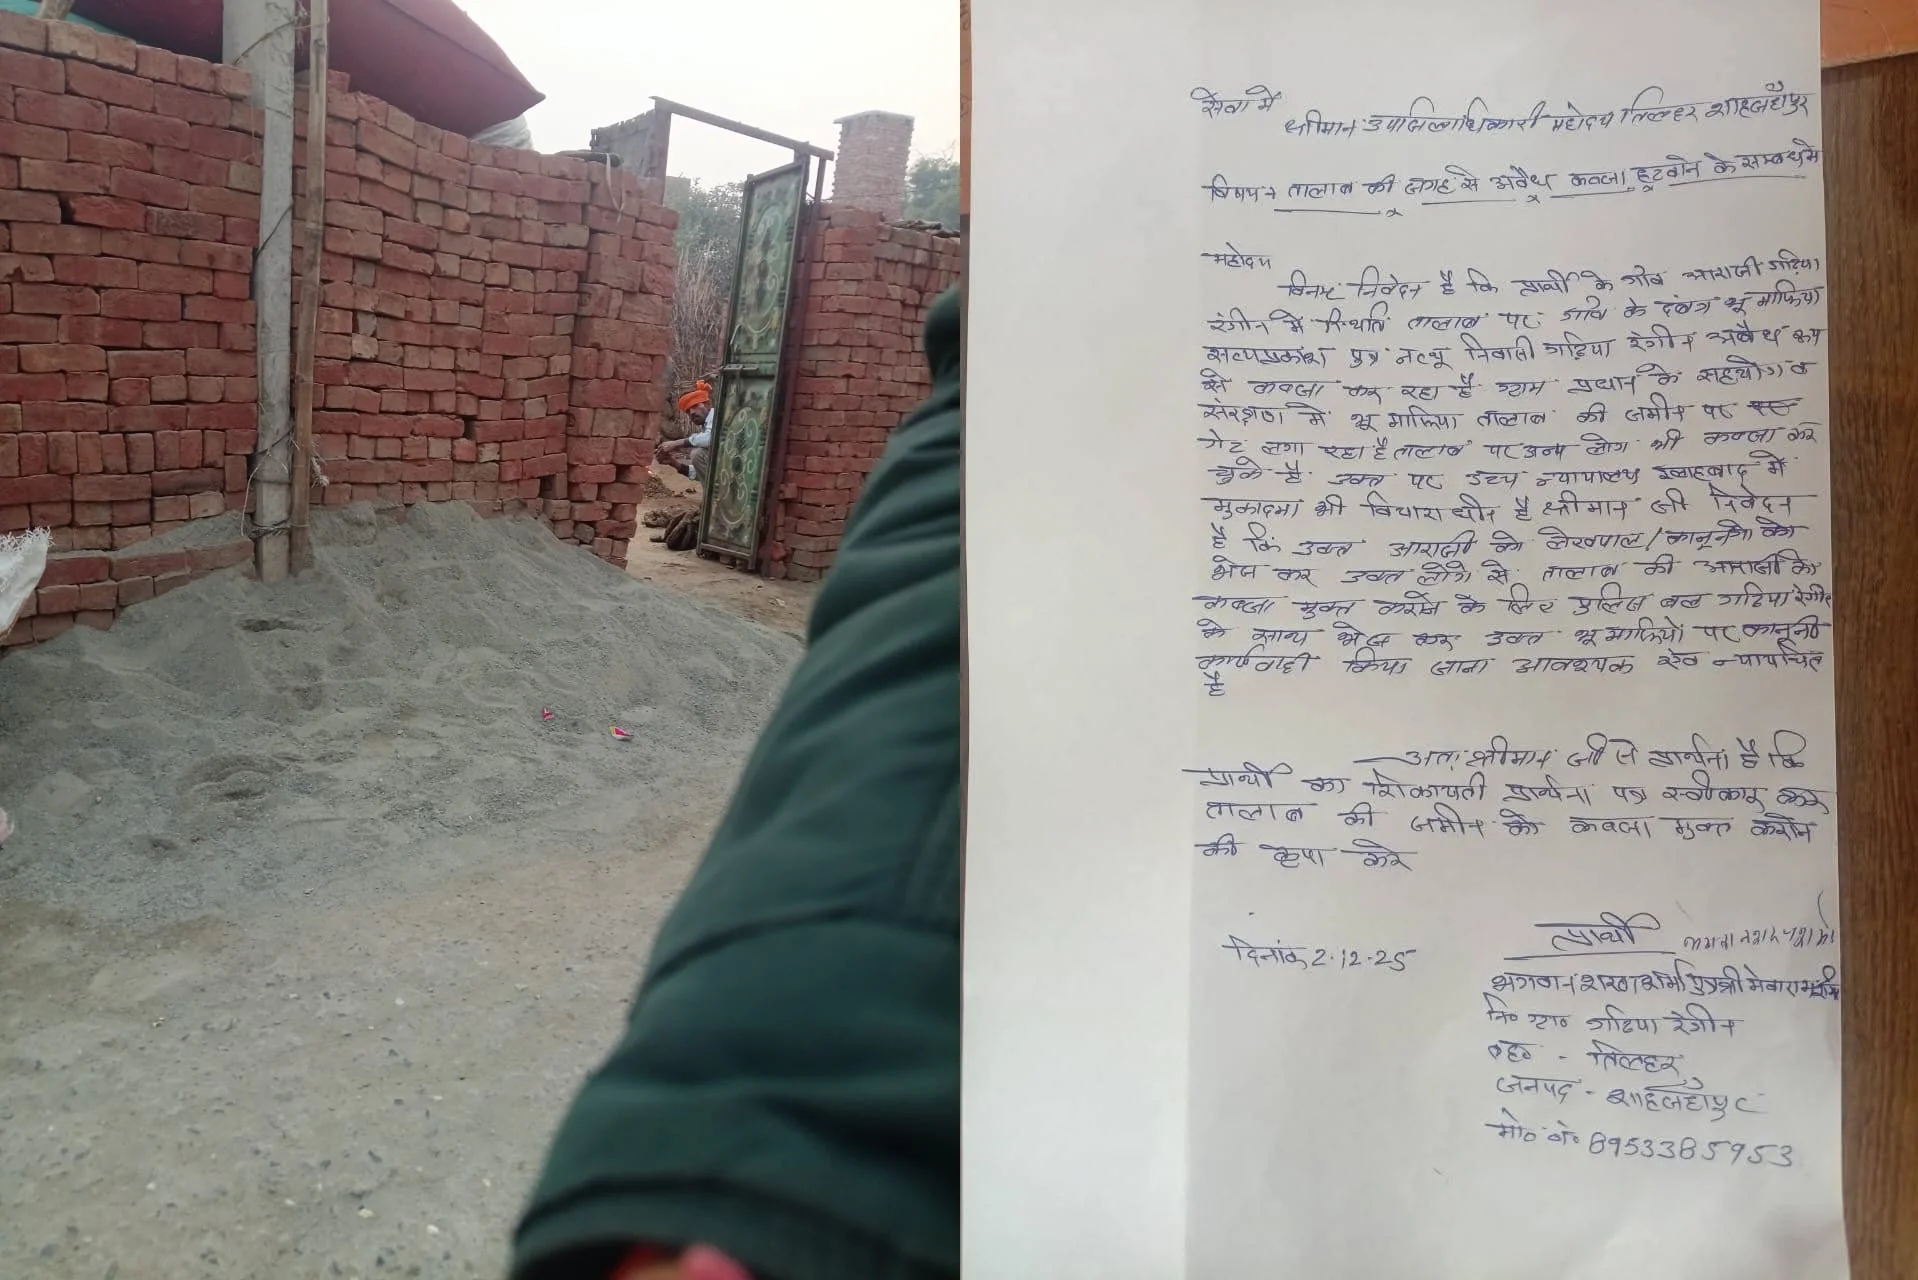 सेवा में
श्रीमान उपजिलाधिकारी महोदय तिलहर शाहजहाँपुर
विषय- तालाब की जगह से अवैध कब्जा हटवाने के सम्बन्ध में
महोदय
विनम्र निवेदन है कि प्रार्थी के गाँव आराजी गढ़िया
रंगीन में स्थिति तालाब पर गाँव के दबंग भू माफिया
सत्यप्रकाश पुत्र नत्थू निवासी गढ़िया रंगीन अवैध रूप
से कब्जा कर रहा है ग्राम प्रधान के सहयोग व
संरक्षण में भू माफिया तालाब की जमीन पर
गेट लगा रहा है तालाब पर अन्य लोग भी कब्जा कर
चुके है उक्त पर उच्च न्यायालय इलाहबाद में
मुकादमा भी विचाराधीन है श्रीमान जी निवेदन
है कि उक्त आराजी को लेखपाल/कानूनगो को
भेज कर उक्त लोगो से तालाब की आराजी को
कब्जा मुक्त कराने के लिए पुलिस बल गढिया रंगीन
के साथ भेज कर उक्त भू माफियों पर कानूनी
कार्यवाही किया जाना आवश्यक एंव न्यायोचित
है
अतः श्रीमान जी से प्रार्थना है कि
प्रार्थी का शिकायती प्रार्थना पत्र स्वीकार कर
तालाब की जमीन को कब्जा मुक्त कराने
की कृपा करे
दिनांक 2.12.25
प्रार्थी
भगवानशरण शर्मा पुत्र श्री मेवाराम
नि० ग्रा० गढिया रंगीन
तह० - तिलहर
जनपद - शाहजहाँपुर
मो० नं० 8953385953